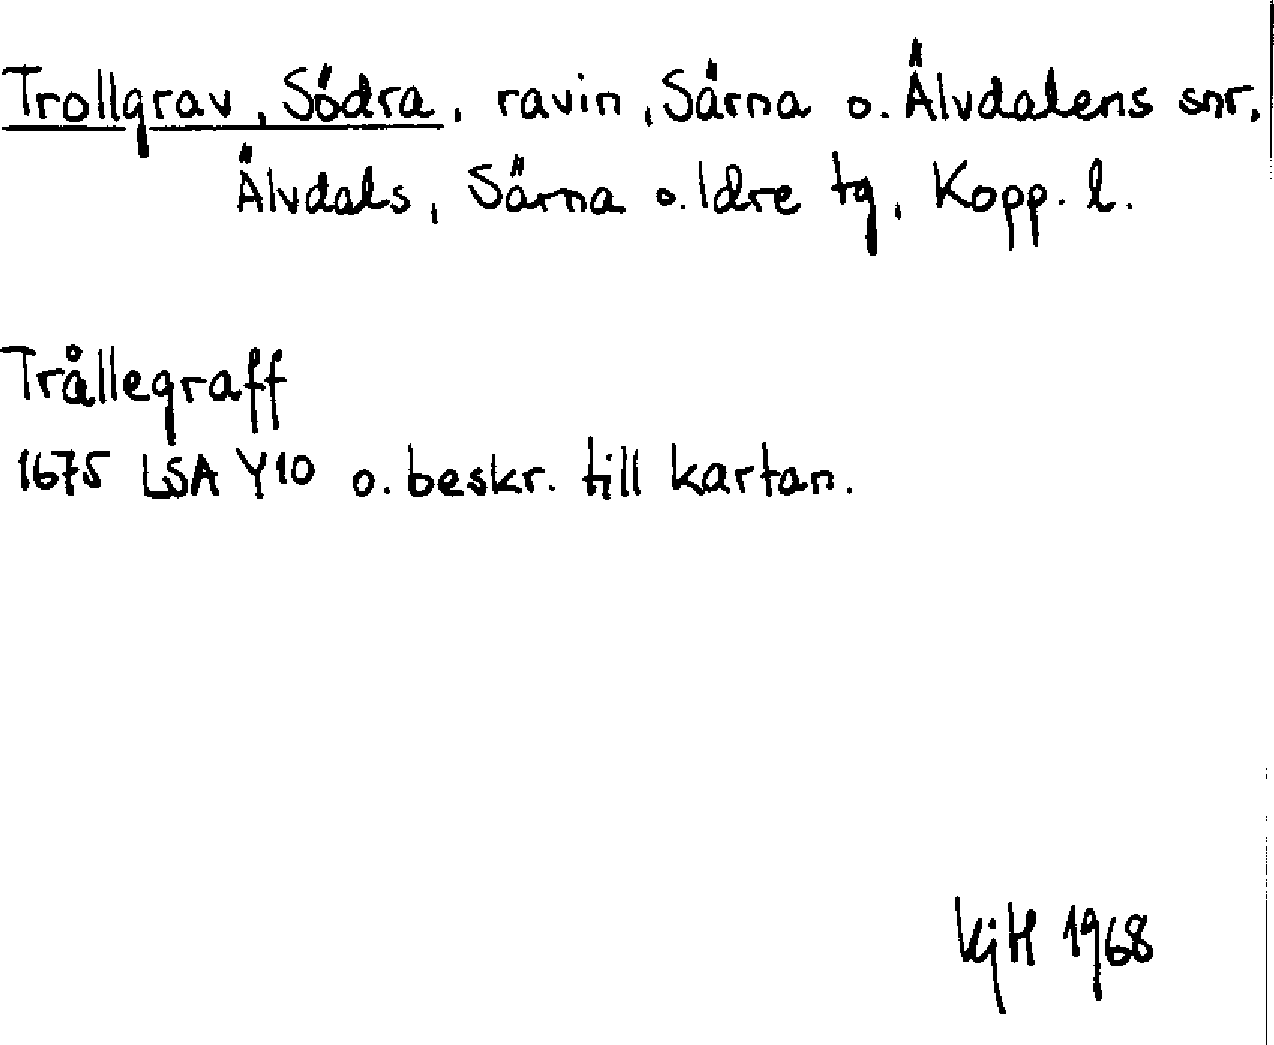 Trollgrav, Södra, ravin, Särna o. Älvdalens snr,
Älvdals, Särna o. Idre tg, Kopp. l.
Trållegraff
1675 LSA Y10 o. beskr. till kartan.
KjH 1968